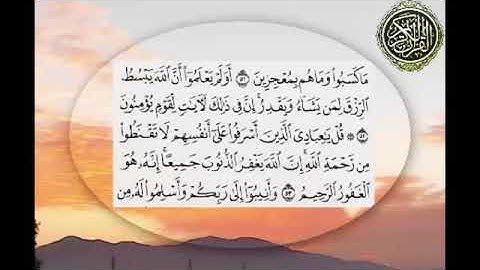 مَا كَسَبُوا۟ وَمَا هُم بِمُعْجِزِينَ ۝٥١ أَوَلَمْ يَعْلَمُوٓا۟ أَنَّ ٱللَّهَ يَبْسُطُ
ٱلرِّزْقَ لِمَن يَشَآءُ وَيَقْدِرُ ۚ إِنَّ فِى ذَٰلِكَ لَءَايَٰتٍ لِّقَوْمٍ يُؤْمِنُونَ
۝٥٢ ۞ قُلْ يَٰعِبَادِىَ ٱلَّذِينَ أَسْرَفُوا۟ عَلَىٰٓ أَنفُسِهِمْ لَا تَقْنَطُوا۟
مِن رَّحْمَةِ ٱللَّهِ ۚ إِنَّ ٱللَّهَ يَغْفِرُ ٱلذُّنُوبَ جَمِيعًا ۚ إِنَّهُۥ هُوَ
ٱلْغَفُورُ ٱلرَّحِيمُ ۝٥٣ وَأَنِيبُوٓا۟ إِلَىٰ رَبِّكُمْ وَأَسْلِمُوا۟ لَهُۥ مِن
القرآن الكريم